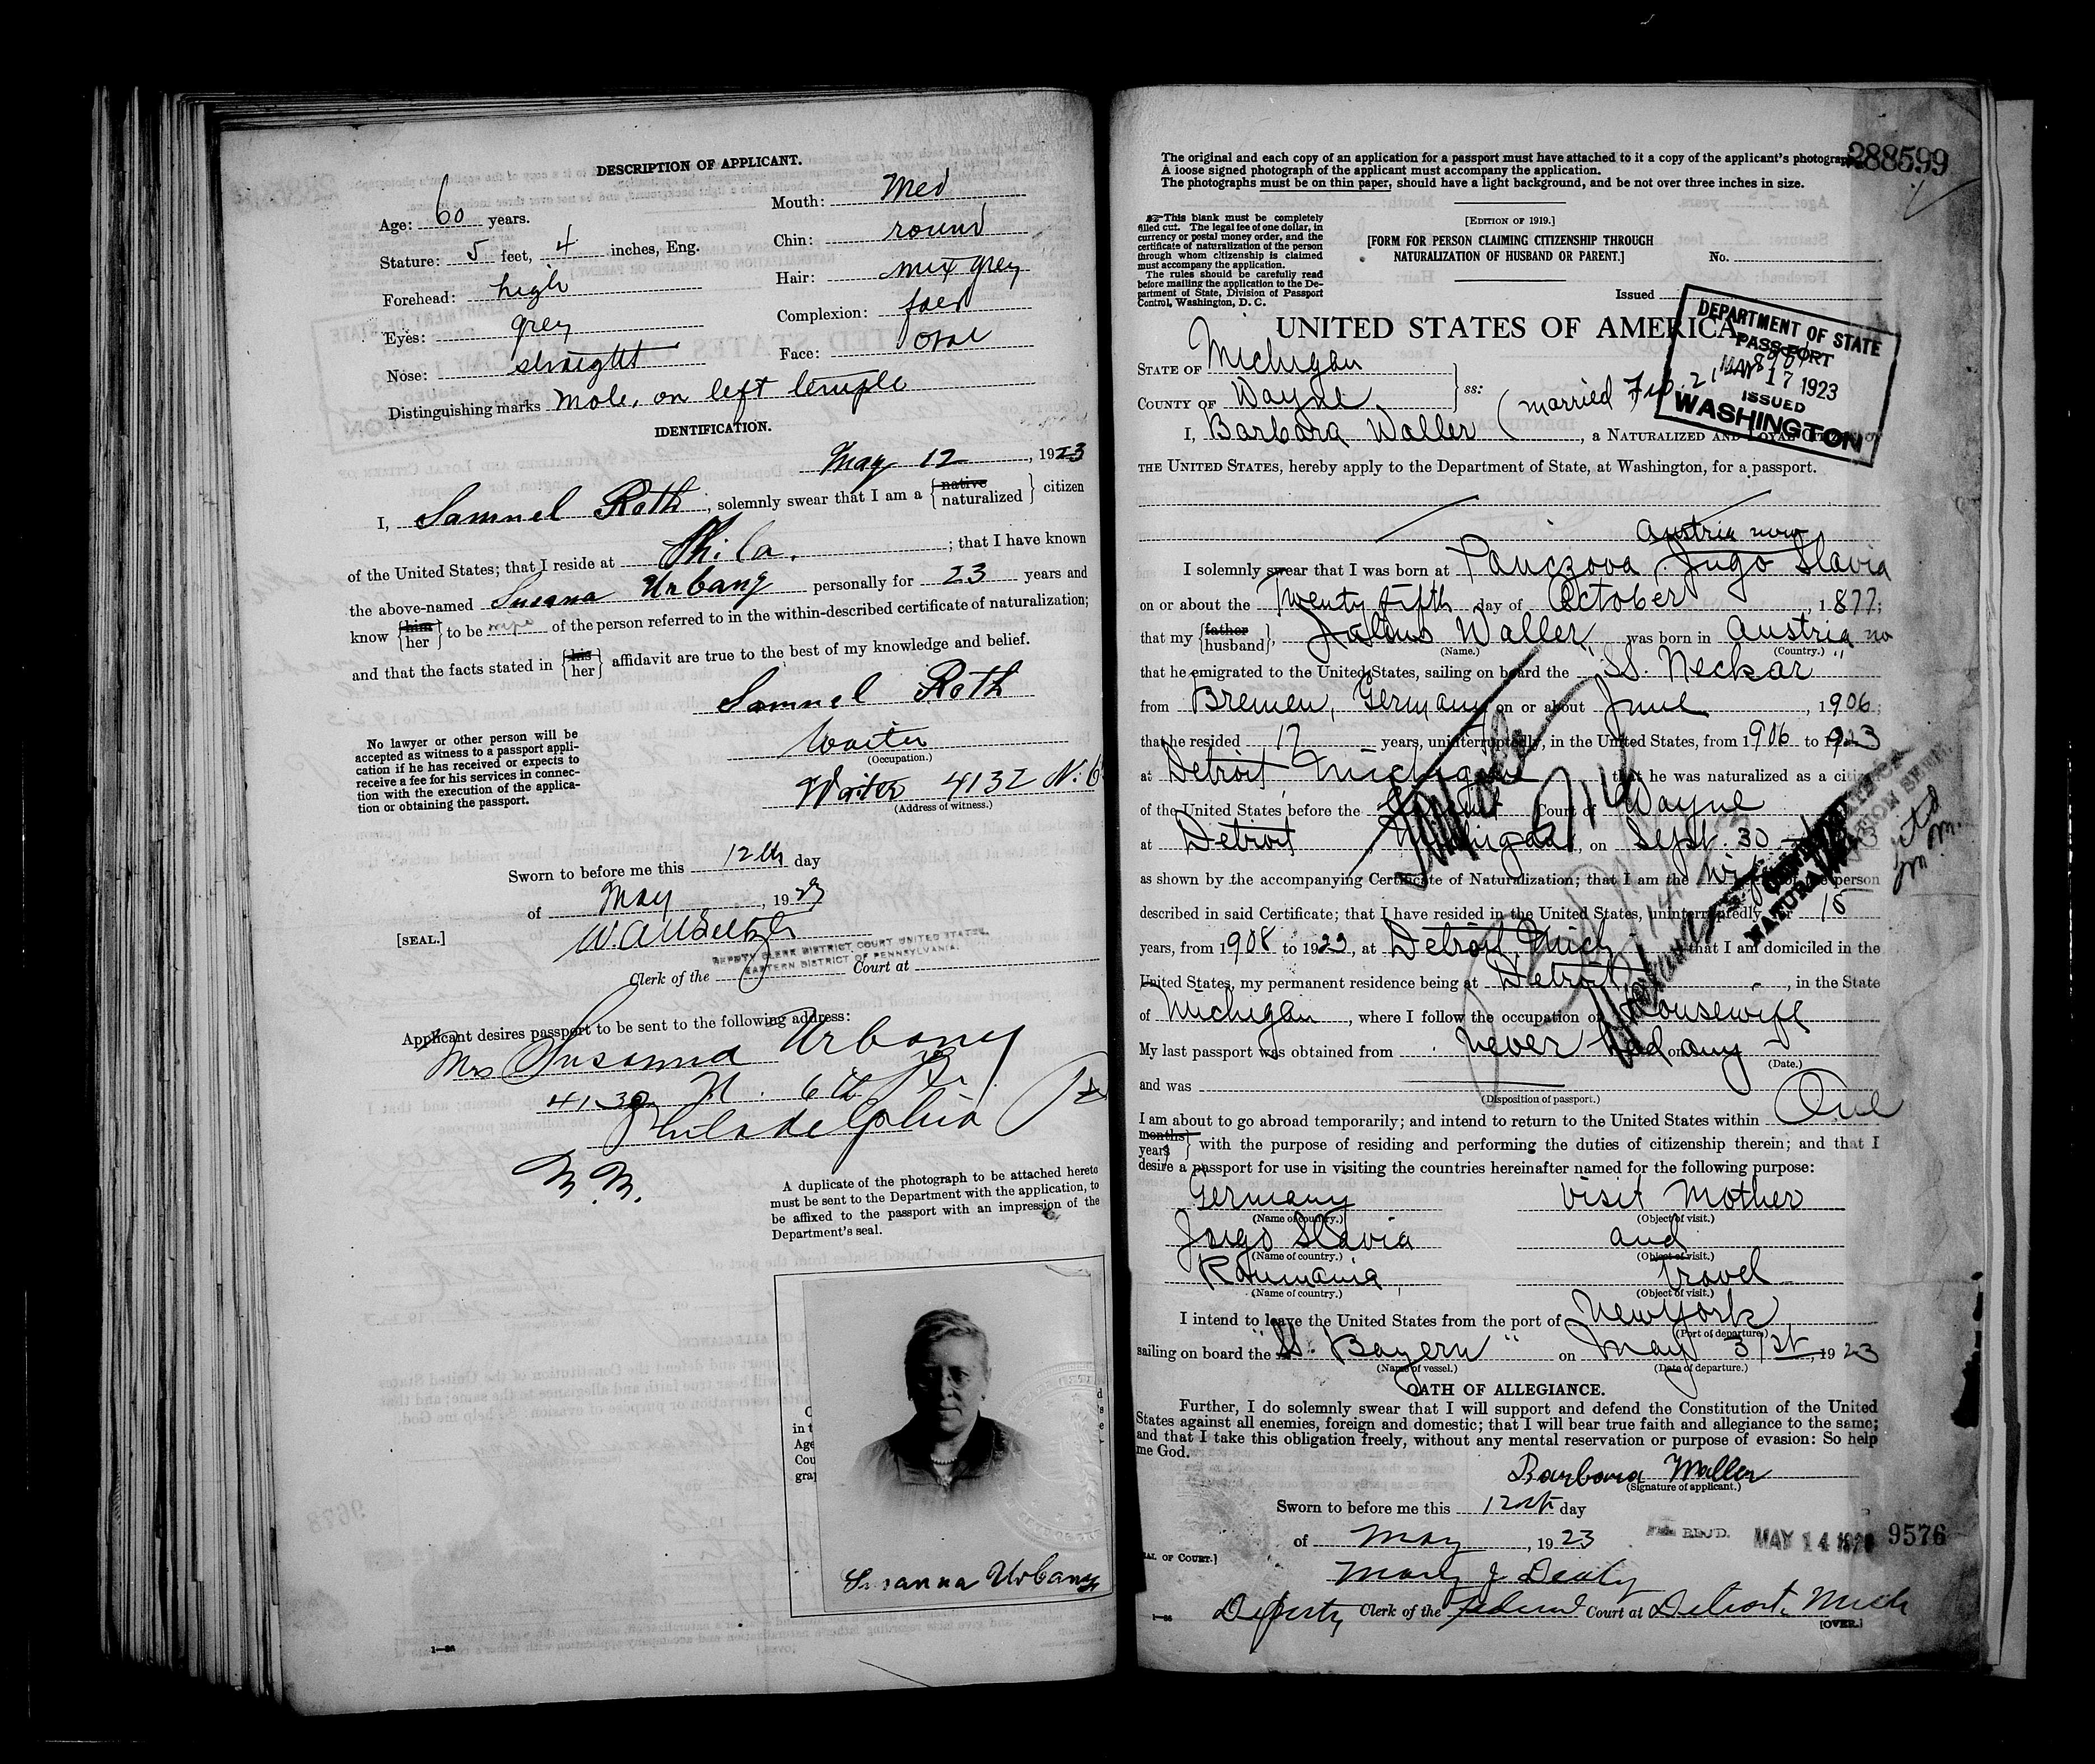 DESCRIPTION OF APPLICANT.
Age: 60 years.
Stature: 5 feet, 4 inches, Eng.
Forehead: high
Eyes: grey
Nose: straight
Mouth: Med
Chin: round
Hair: mix grey
Complexion: fair
Face: oval
Distinguishing marks Mole, on left temple
IDENTIFICATION.
May 12, 1923
I, Samuel Roth, solemnly swear that I am a {native naturalized} citizen
of the United States; that I reside at Phila.; that I have known
the above-named Susana Urbany personally for 23 years and
know {him her} to be wife of the person referred to in the within-described certificate of naturalization;
and that the facts stated in {his her} affidavit are true to the best of my knowledge and belief.
Samuel Roth
No lawyer or other person will be
accepted as witness to a passport appli-
cation if he has received or expects to
receive a fee for his services in connec-
tion with the execution of the applica-
tion or obtaining the passport.
Waiter
(Occupation.)
Waiter 4132 N. 6
(Address of witness.)
Sworn to before me this 12th day
of May, 1923
[SEAL.]
DEPUTY CLERK DISTRICT COURT UNITED STATES,
EASTERN DISTRICT OF PENNSYLVANIA.
Clerk of the Court at
Applicant desires passport to be sent to the following address:
Mrs Susanna Urbany
4132 N. 6th St.
Philadelphia Pa
A duplicate of the photograph to be attached hereto
must be sent to the Department with the application, to
be affixed to the passport with an impression of the
Department's seal.
Susanna Urbany
The original and each copy of an application for a passport must have attached to it a copy of the applicant's photograph.
A loose signed photograph of the applicant must accompany the application.
The photographs must be on thin paper, should have a light background, and be not over three inches in size.
288599
This blank must be completely
filled out. The legal fee of one dollar, in
currency or postal money order, and the
certificate of naturalization of the person
through whom citizenship is claimed
must accompany the application.
The rules should be carefully read
before mailing the application to the De-
partment of State, Division of Passport
Control, Washington, D. C.
[EDITION OF 1919.]
[FORM FOR PERSON CLAIMING CITIZENSHIP THROUGH
NATURALIZATION OF HUSBAND OR PARENT.]
No.
Issued
UNITED STATES OF AMERICA
DEPARTMENT OF STATE
PASSPORT
MAY 17 1923
ISSUED
WASHINGTON
STATE OF Michigan
COUNTY OF Wayne } ss:
(married Feb. 21
I, Barbara Waller, a NATURALIZED AND LOYAL CITIZEN OF
THE UNITED STATES, hereby apply to the Department of State, at Washington, for a passport.
Austria now
I solemnly swear that I was born at Panczova Jugo Slavia
on or about the Twenty fifth day of October, 1877;
that my {father husband}, Julius Waller was born in Austria
(Name.) (Country.)
that he emigrated to the United States, sailing on board the "SS. Neckar"
from Bremen, Germany on or about June, 1906;
that he resided 17 years, uninterruptedly, in the United States, from 1906 to 1923
at Detroit Michigan that he was naturalized as a citizen
of the United States before the Court of Wayne
at Detroit Michigan, on Sept. 30
as shown by the accompanying Certificate of Naturalization; that I am the wife of the person
described in said Certificate; that I have resided in the United States, uninterruptedly for 15
years, from 1908 to 1923, at Detroit Mich that I am domiciled in the
United States, my permanent residence being at Detroit, in the State
of Michigan, where I follow the occupation of Housewife
My last passport was obtained from never had on any
(Date.)
and was
(Disposition of passport.)
I am about to go abroad temporarily; and intend to return to the United States within One
{months years} with the purpose of residing and performing the duties of citizenship therein; and that I
desire a passport for use in visiting the countries hereinafter named for the following purpose:
Germany visit Mother
(Name of country.) (Object of visit.)
Jugo Slavia and
(Name of country.) (Object of visit.)
Roumania travel
(Name of country.) (Object of visit.)
I intend to leave the United States from the port of New York
(Port of departure)
sailing on board the "SS. Bayern" on May 31st, 1923
(Name of vessel.) (Date of departure.)
OATH OF ALLEGIANCE.
Further, I do solemnly swear that I will support and defend the Constitution of the United
States against all enemies, foreign and domestic; that I will bear true faith and allegiance to the same;
and that I take this obligation freely, without any mental reservation or purpose of evasion: So help
me God.
Barbara Waller
(Signature of applicant.)
Sworn to before me this 12th day
of May, 1923
MAY 14 1923
9576
Deputy Clerk of the Federal Court at Detroit, Mich
[OVER.]